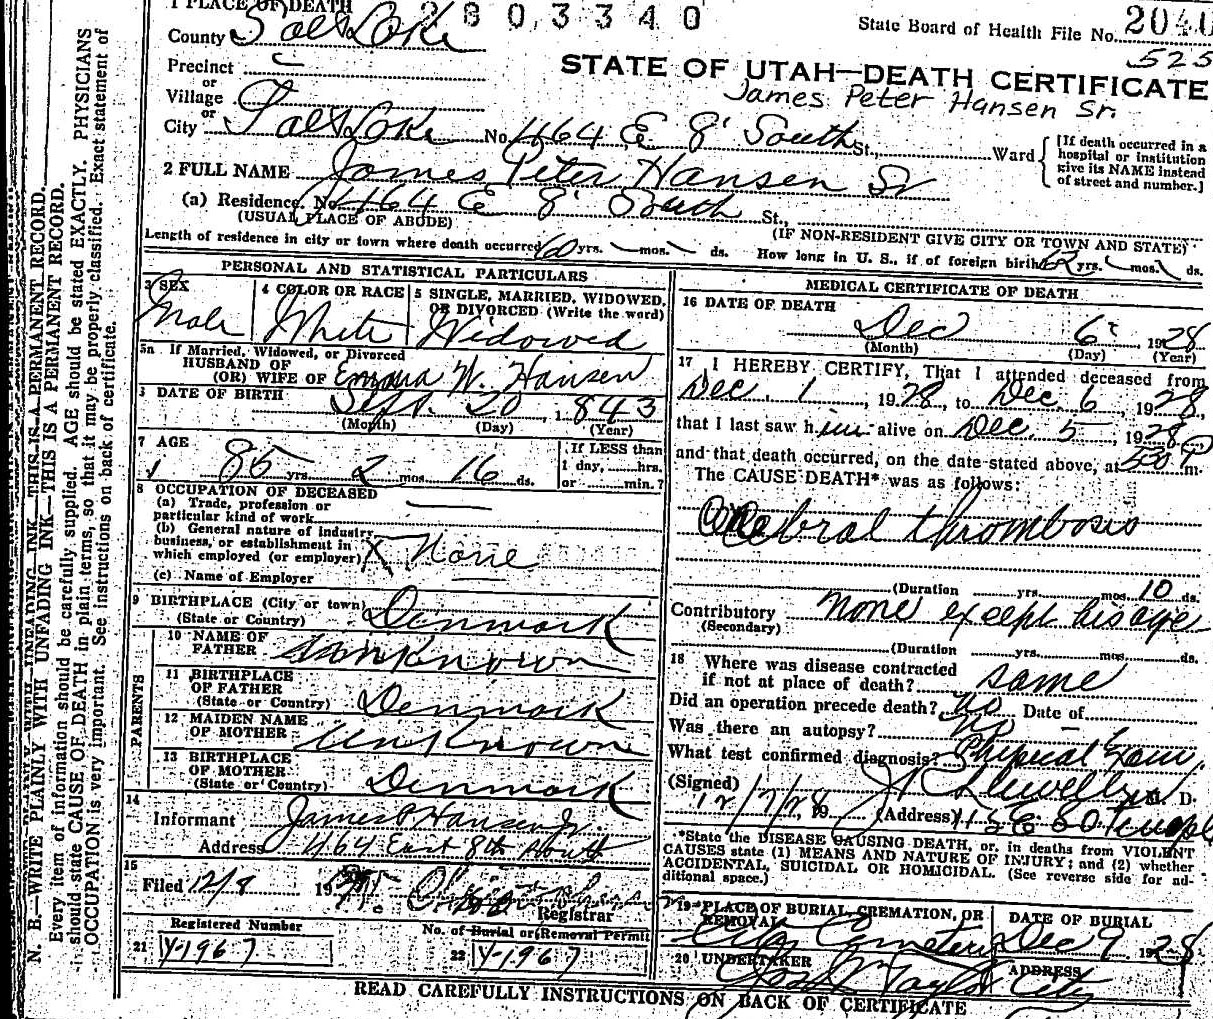 1 PLACE OF DEATH 2803340
State Board of Health File No. 2040
County Salt Lake
525
Precinct
STATE OF UTAH—DEATH CERTIFICATE
or
Village
James Peter Hansen Sr.
or
City Salt Lake No. 464 E 8' South St., Ward
[If death occurred in a hospital or institution give its NAME instead of street and number.]
2 FULL NAME James Peter Hansen Sr
(a) Residence. No. 464 E 8' South St.,
(USUAL PLACE OF ABODE) (IF NON-RESIDENT GIVE CITY OR TOWN AND STATE)
Length of residence in city or town where death occurred 60 yrs. — mos. — ds. How long in U. S., if of foreign birth 62 yrs. — mos. ds.
PERSONAL AND STATISTICAL PARTICULARS
3 SEX Male
4 COLOR OR RACE White
5 SINGLE, MARRIED, WIDOWED, OR DIVORCED (Write the word) Widowed
5a If Married, Widowed, or Divorced
HUSBAND OF
(OR) WIFE OF Emma W. Hansen
DATE OF BIRTH Sept. 20 1843
(Month) (Day) (Year)
7 AGE
85 yrs. 2 mos. 16 ds.
If LESS than
1 day, hrs.
or min.?
8 OCCUPATION OF DECEASED
(a) Trade, profession or
particular kind of work
(b) General nature of industry,
business, or establishment in
which employed (or employer) None
(c) Name of Employer
9 BIRTHPLACE (City or town)
(State or Country) Denmark
PARENTS
10 NAME OF
FATHER Unknown
11 BIRTHPLACE
OF FATHER
(State or Country) Denmark
12 MAIDEN NAME
OF MOTHER Unknown
13 BIRTHPLACE
OF MOTHER
(State or Country) Denmark
14
Informant James P Hansen Jr.
Address 464 East 8th South
15
Filed 12/8 19
Registrar
Registered Number
21 Y-1967
No. of Burial or Removal Permit
22 Y-1967
MEDICAL CERTIFICATE OF DEATH
16 DATE OF DEATH
Dec 6 1928
(Month) (Day) (Year)
17 I HEREBY CERTIFY, That I attended deceased from
Dec. 1, 1928, to Dec. 6, 1928,
that I last saw him alive on Dec. 5, 1928
and that death occurred, on the date stated above, at 530 P m.
The CAUSE DEATH* was as follows:
Cerebral thrombosis
(Duration yrs. mos. 10 ds.
Contributory None except his age
(Secondary)
(Duration yrs. mos. ds.
18 Where was disease contracted
if not at place of death? same
Did an operation precede death? No Date of
Was there an autopsy? No
What test confirmed diagnosis? Physical Exam.
(Signed) Llewellyn M. D.
12/7/28, 19 (Address) 115 E. So Temple
*State the DISEASE CAUSING DEATH, or, in deaths from VIOLENT
CAUSES state (1) MEANS AND NATURE OF INJURY; and (2) whether
ACCIDENTAL, SUICIDAL OR HOMICIDAL. (See reverse side for ad-
ditional space.)
19 PLACE OF BURIAL, CREMATION, OR REMOVAL
City Cemetery
DATE OF BURIAL
Dec 9 1928
20 UNDERTAKER
Taylor
ADDRESS
City
READ CAREFULLY INSTRUCTIONS ON BACK OF CERTIFICATE
N. B.—WRITE PLAINLY WITH UNFADING INK—THIS IS A PERMANENT RECORD.
Every item of information should be carefully supplied. AGE should be stated EXACTLY. PHYSICIANS
should state CAUSE OF DEATH in plain terms, so that it may be properly classified. Exact statement of
OCCUPATION is very important. See instructions on back of certificate.